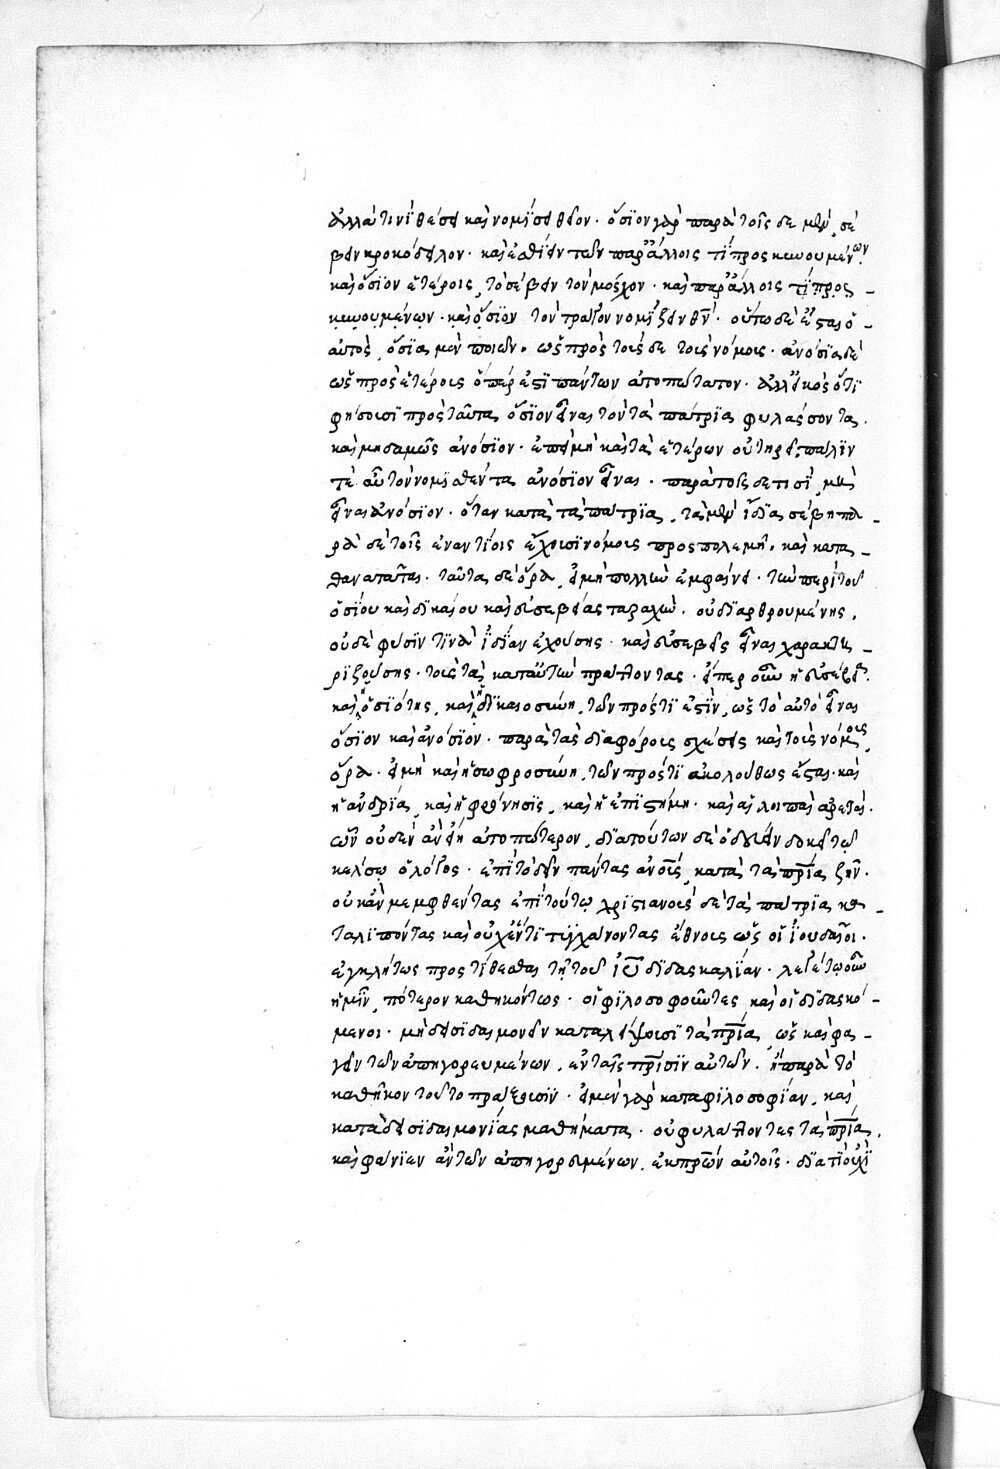 ἀλλά τινι θέσει καὶ νομίσει θεῖον. ὅσιον γὰρ παρὰ τοῖσδε μὲν, σέ
βειν κροκόδειλον. καὶ ἐσθίειν τῶν παρ' ἄλλοις τι προσκυνουμένων.
καὶ ὅσιον ἑτέροις, τὸ σέβειν τὸν μόσχον. καὶ παρ' ἄλλοις τι προσ-
κυνουμένων. καὶ ὅσιον τὸν τράγον νομίζειν θν. οὕτω δὲ ἔσται ὁ-
αὐτὸς, ὅσια μὲν ποιῶν. ὡς πρὸς τούσδε τοὺς νόμους. ἀνόσια δὲ
ὡς πρὸς ἑτέρους ὅπερ ἐστὶ πάντων ἀτοπώτατον. ἀλλ' εἰκὸς ὅτι
φήσουσι πρὸς ταῦτα, ὅσιον εἶναι τὸν τὰ πάτρια φυλάσσοντα.
καὶ μηδαμῶς ἀνόσιον. ἐπεὶ μὴ καὶ τὰ ἑτέρων οὐ τηρεῖ, πάλιν
τὲ αὖ τὸν νομισθέντα ἀνόσιον εἶναι. παρὰ τοῖσδέ τισι, μὴ
εἶναι ἀνόσιον. ὅταν κατὰ τὰ πάτρια, τὰ μὲν ἴδια σέβῃ πα-
ρὰ δὲ τοῖς ἐναντίοις ἔχουσι νόμοις προσπολεμῇ. καὶ κατα-
θοινᾶται. ταῦτα δὲ ὅρα, εἰ μὴ πολλὴν ἐμφαίνει. τὴν περὶ τοῦ
ὁσίου καὶ δικαίου καὶ εὐσεβείας ταραχὴν. οὐ διαρθρουμένης,
οὐδὲ φύσιν τινὰ ἰδίαν ἐχούσης. καὶ εὐσεβεῖς εἶναι χαρακτη-
ριζούσης. τοὺς τὰ κατ' αὐτὴν πράττοντας. εἴπερ οὖν ἡ εὐσέβεια.
καὶ ἡ ὁσιότης, καὶ ἡ δικαιοσύνη, τῶν πρός τι ἐστὶν, ὡς τὸ αὐτὸ εἶναι
ὅσιον καὶ ἀνόσιον. παρὰ τὰς διαφόρους σχέσεις καὶ τοὺς νόμους,
ὅρα. εἰ μὴ καὶ ἡ σωφροσύνη, τῶν πρός τι ἀκολούθως ἔσται. καὶ
ἡ ἀνδρία, καὶ ἡ φρόνησις, καὶ ἡ ἐπιστήμη. καὶ αἱ λοιπαὶ ἀρεταὶ.
ὧν οὐδὲν ἂν εἴη ἀτοπώτερον. διὰ τούτων δὲ ὁδεύειν δοκεῖ τῷ
κέλσῳ ὁ λόγος. ἐπὶ τὸ δεῖν πάντας ἀνους, κατὰ τὰ πρια ζῆν.
οὐκ ἂν μεμφθέντας ἐπὶ τούτῳ χριστιανοὺς δὲ τὰ πάτρια κα-
ταλιπόντας καὶ οὐχ ἕν τι τυγχάνοντας ἔθνος ὡς οἱ ἰουδαῖοι.
ἐγκλήτως προστίθεσθαι τῇ τοῦ ιυ διδασκαλίαν. λεγέτω οὖν
ἡμῖν, πότερον καθηκόντως. οἱ φιλοσοφοῦντες καὶ οἱ διδασκό-
μενοι. μὴ δεισιδαιμονεῖν καταλείψουσι τὰ πρια, ὡς καὶ φα-
γεῖν τῶν ἀπηγορευμένων, ἐν ταῖς πρισιν αὐτῶν. ἢ παρὰ τὸ
καθῆκον τοῦτο πράξουσιν. εἰ μὲν γὰρ κατὰ φιλοσοφίαν, καὶ
κατὰ δεισιδαιμονίας μαθήματα. οὐ φυλάττοντες τὰ πρια,
καὶ φάγοιεν ἂν τῶν ἀπηγορευμένων, ἐκ πρων αὐτοῖς. διατί οὐχὶ